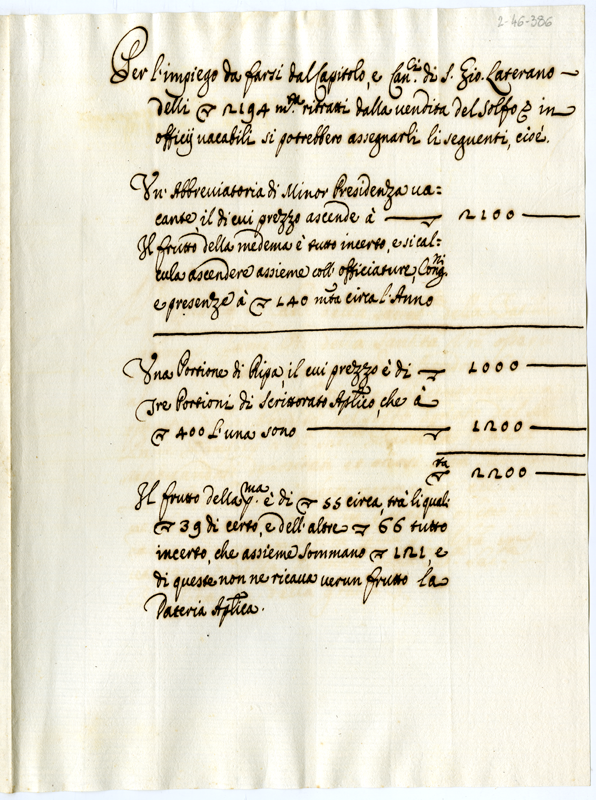 2-46-386
Per l'impiego da farsi dal Capitolo, e Can.ci di S. Gio. Laterano —
delli ∇ 2194 m.ta ritratti dalla vendita del Solfo p in
officij vacabili si potrebbero assegnarli li seguenti, cioè.
Vn' Abbreviatoria di Minor Presidenza va=
cante, il di cui prezzo ascende à — ∇ 2100 —
Il frutto della medema è tutto incerto, e si cal=
cula ascendere assieme coll' officiature, Cong.ni
e presenze à ∇ 140 m.ta circa l'Anno
Vna Portione di Ripa, il cui prezzo è di ∇ 1000 —
Tre Portioni di Scrittorato Aplico, che à
∇ 400 l'una sono — ∇ 1200 —
∇ 2200 —
Il frutto della p.ma è di ∇ 55 circa, trà li quali
∇ 39 di certo, e dell' altre ∇ 66 tutto
incerto, che assieme sommano ∇ 121, e
di queste non ne ricava verun frutto la
Dateria Aplica.